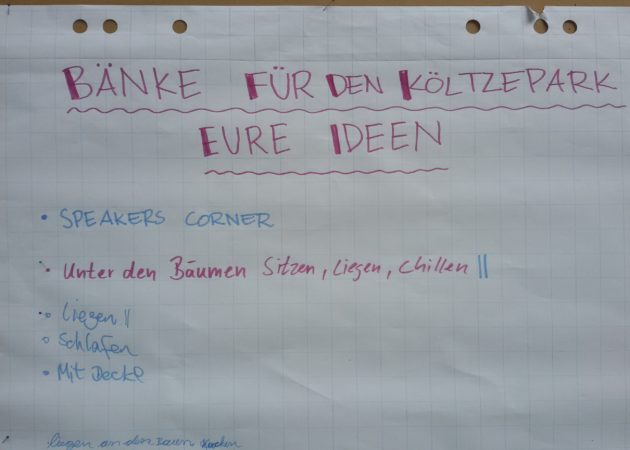 BÄNKE FÜR DEN KÖLTZEPARK
EURE IDEEN
• SPEAKERS CORNER
• Unter den Bäumen Sitzen, Liegen, Chillen ||
• Liegen ||
• Schlafen
• Mit Decke
liegen an den